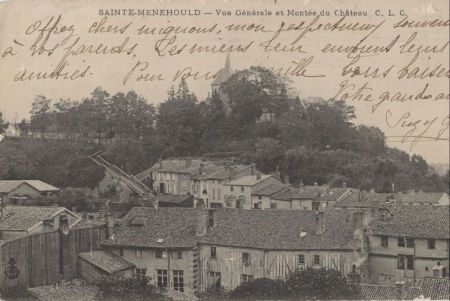 SAINTE-MENEHOULD — Vue Générale et Montée du Château C. L. C.
Offrez chers mignons, mon respectueux souvenir
à vos parents. Les miens leur envoient leurs
amitiés. Pour vous mille bons baisers
Votre grande amie